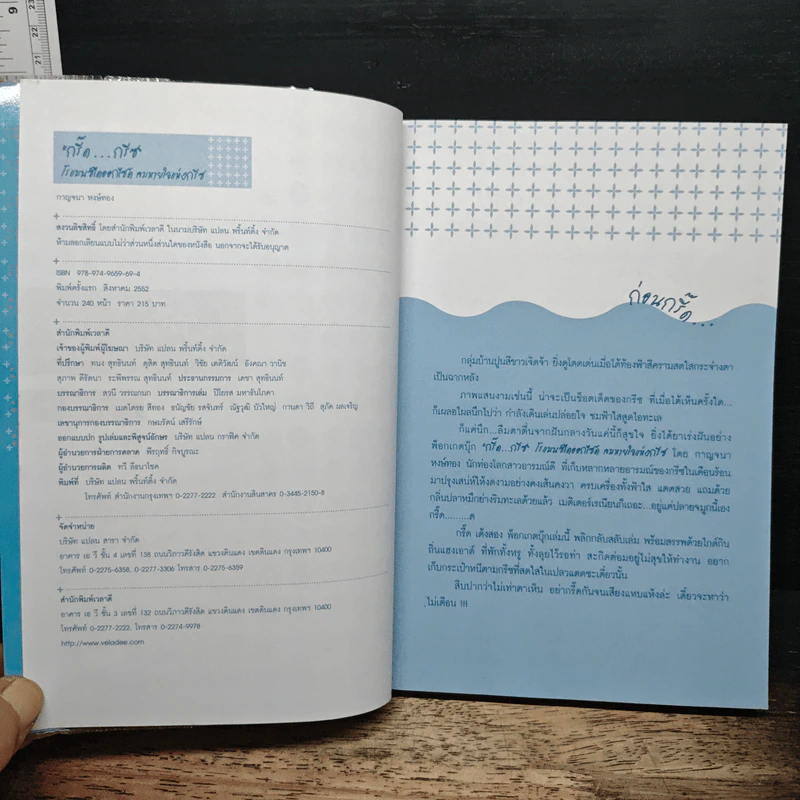 9
23
22
21
"กรี๊ด...กรีซ"
โรแมนซิตออกเซ็ต คนหายใจแห่งกรีซ
กาญจนา หงษ์ทอง
สงวนลิขสิทธิ์ โดยสำนักพิมพ์เวลาดี ในนามบริษัท แปลน พริ้นท์ติ้ง จำกัด
ห้ามลอกเลียนแบบไม่ว่าส่วนหนึ่งส่วนใดของหนังสือ นอกจากจะได้รับอนุญาต
ISBN 978-974-9659-69-4
พิมพ์ครั้งแรก สิงหาคม 2552
จำนวน 240 หน้า ราคา 215 บาท
สำนักพิมพ์เวลาดี
เจ้าของผู้พิมพ์ผู้โฆษณา บริษัท แปลน พริ้นท์ติ้ง จำกัด
ที่ปรึกษา ทนง สุทธินนท์ ดุสิต สุทธินนท์ วิชัย เตติวัฒน์ อังคณา วานิช
สุภาพ ดีรัตนา ระพีพรรณ สุทธินนท์ ประธานกรรมการ เดชา สุทธินนท์
บรรณาธิการ สวนี วรรณกนก บรรณาธิการเล่ม ปิโยรส มหาธันโภคา
กองบรรณาธิการ เมตไตรย สีทอง ธนัญชัย รสจันทร์ ณัฐวุฒิ บัวใหญ่ กานดา วิถี สุกัด ผลเจริญ
เลขานุการกองบรรณาธิการ กษมรัตน์ เสรีรักษ์
ออกแบบปก รูปเล่มและพิสูจน์อักษร บริษัท แปลน กราฟิค จำกัด
ผู้อำนวยการฝ่ายการตลาด พีรฤทธิ์ กิจบูรณะ
ผู้อำนวยการผลิต ทวี ลีธนาโชค
พิมพ์ที่ บริษัท แปลน พริ้นท์ติ้ง จำกัด
โทรศัพท์ สำนักงานกรุงเทพฯ 0-2277-2222 สำนักงานสินสาคร 0-3445-2150-8
จัดจำหน่าย
บริษัท แปลน สารา จำกัด
อาคาร เอ วี ชั้น 4 เลขที่ 138 ถนนวิภาวดีรังสิต แขวงดินแดง เขตดินแดง กรุงเทพฯ 10400
โทรศัพท์ 0-2275-6358, 0-2277-3306 โทรสาร 0-2275-6359
สำนักพิมพ์เวลาดี
อาคาร เอ วี ชั้น 3 เลขที่ 132 ถนนวิภาวดีรังสิต แขวงดินแดง เขตดินแดง กรุงเทพฯ 10400
โทรศัพท์ 0-2277-2222, โทรสาร 0-2274-9978
http://www.veladee.com
ก่อนกรี๊ด...
กลุ่มบ้านปูนสีขาวเจิดจ้า ยิ่งดูโดดเด่นเมื่อได้ท้องฟ้าสีครามสดใสกระจ่างตา
เป็นฉากหลัง
ภาพแสนงามเช่นนี้ น่าจะเป็นช็อตเด็ดของกรีซ ที่เมื่อได้เห็นครั้งใด...
ก็เผลอไผลนึกไปว่า กำลังเดินเล่นปล่อยใจ ชมฟ้าใสสูดไอทะเล
ก็แค่นึก...ลืมตาตื่นจากฝันกลางวันแค่นี้ก็สุขใจ ยิ่งได้ยาเร่งฝันอย่าง
พ็อกเกตบุ๊ก "กรี๊ด...กรีซ" โรแมนซิตออกเซ็ต คนหายใจแห่งกรีซ โดย กาญจนา
หงษ์ทอง นักท่องโลกสาวอารมณ์ดี ที่เก็บหลากหลายอารมณ์ของกรีซในเดือนร้อน
มาปรุงเสน่ห์ให้งดงามอย่างคงเส้นคงวา ครบเครื่องทั้งฟ้าใส แดดสวย แถมด้วย
กลิ่นปลาหมึกย่างริมทะเลด้วยแล้ว เมดิเตอร์เรเนียนก็เถอะ...อยู่แค่ปลายจมูกนี้เอง
กรี๊ด.........ด
กรี๊ด เด้งสอง พ็อกเกตบุ๊กเล่มนี้ พลิกกลับสลับเล่ม พร้อมสรรพด้วยไกด์กิน
ถิ่นแฮงเอาต์ ที่พักทั้งหรู ทั้งลุยไว้รอท่า สะกิดต่อมอยู่ไม่สุขให้ทำงาน อยาก
เก็บกระเป๋าหนีตามกรีซที่สดใสในเปลวแดดซะเดี๋ยวนั้น
สิบปากว่าไม่เท่าตาเห็น อย่ากรี๊ดกันจนเสียงแหบแห้งล่ะ เดี๋ยวจะหาว่า
ไม่เตือน !!!